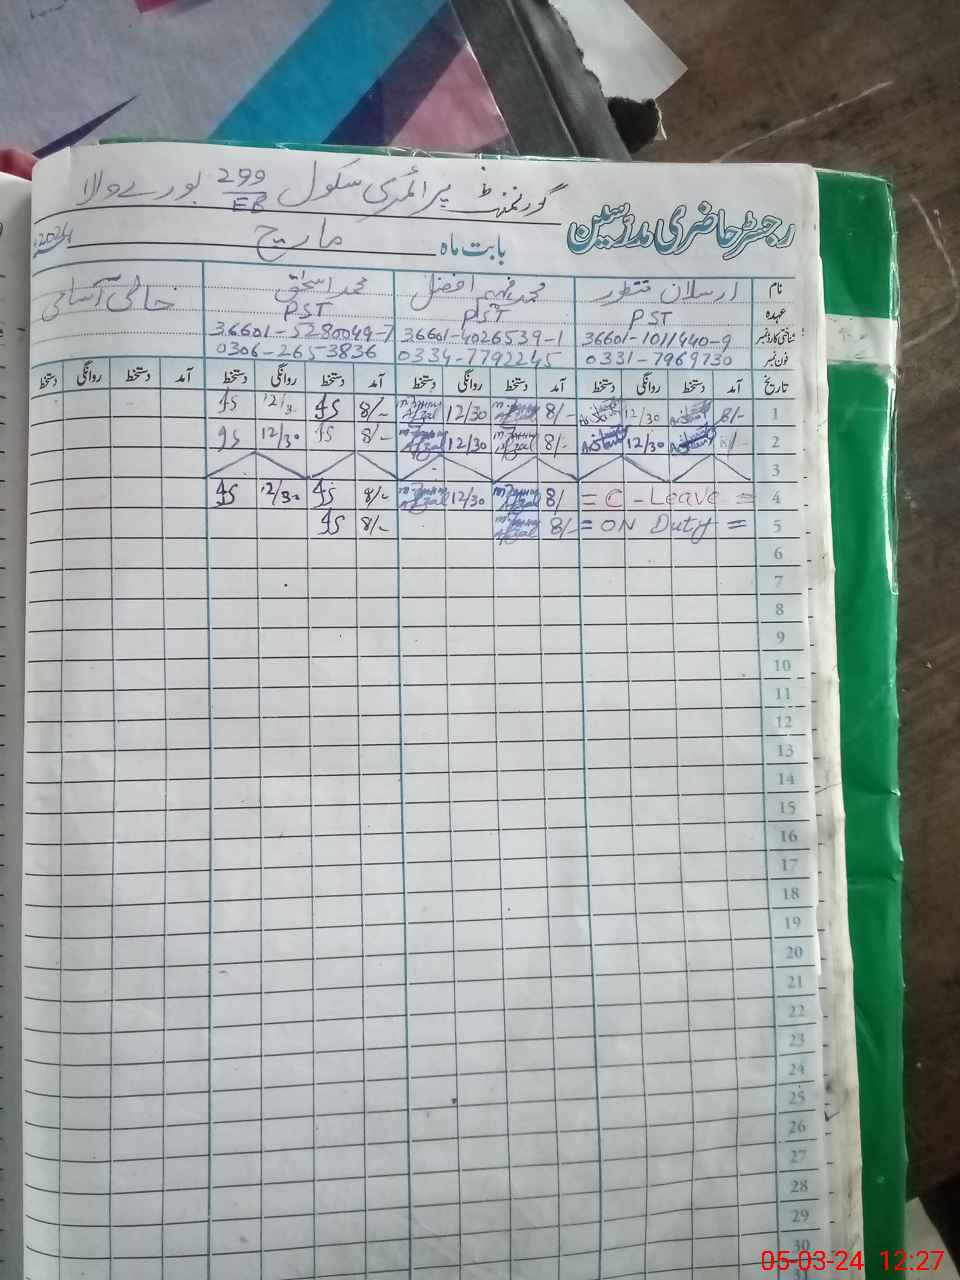 گورنمنٹ پرائمری سکول 299/EB بورے والا
رجسٹر حاضری مدرسین
بابت ماہ مارچ 2024ء
نام ارسلان منظور محمد فہیم افضل محمد اسحٰق خالی آسامی
عہدہ PST PST PST
شناختی کارڈ نمبر 36601-1011440-9 36601-4026539-1 36601-5280049-7
فون نمبر 0331-7969730 0334-7792245 0306-2653836
تاریخ آمد دستخط روانگی دستخط آمد دستخط روانگی دستخط آمد دستخط روانگی دستخط آمد دستخط روانگی دستخط
1 8/- 12/30 8/- 12/30 8/- 12/3
2 8/- 12/30 8/- 12/30 8/- 12/30
3
4 = C - Leave = 8/ 12/30 8/- 12/30
5 = ON Duty = 8/- 8/-
6
7
8
9
10
11
12
13
14
15
16
17
18
19
20
21
22
23
24
25
26
27
28
29
30
05-03-24 12:27